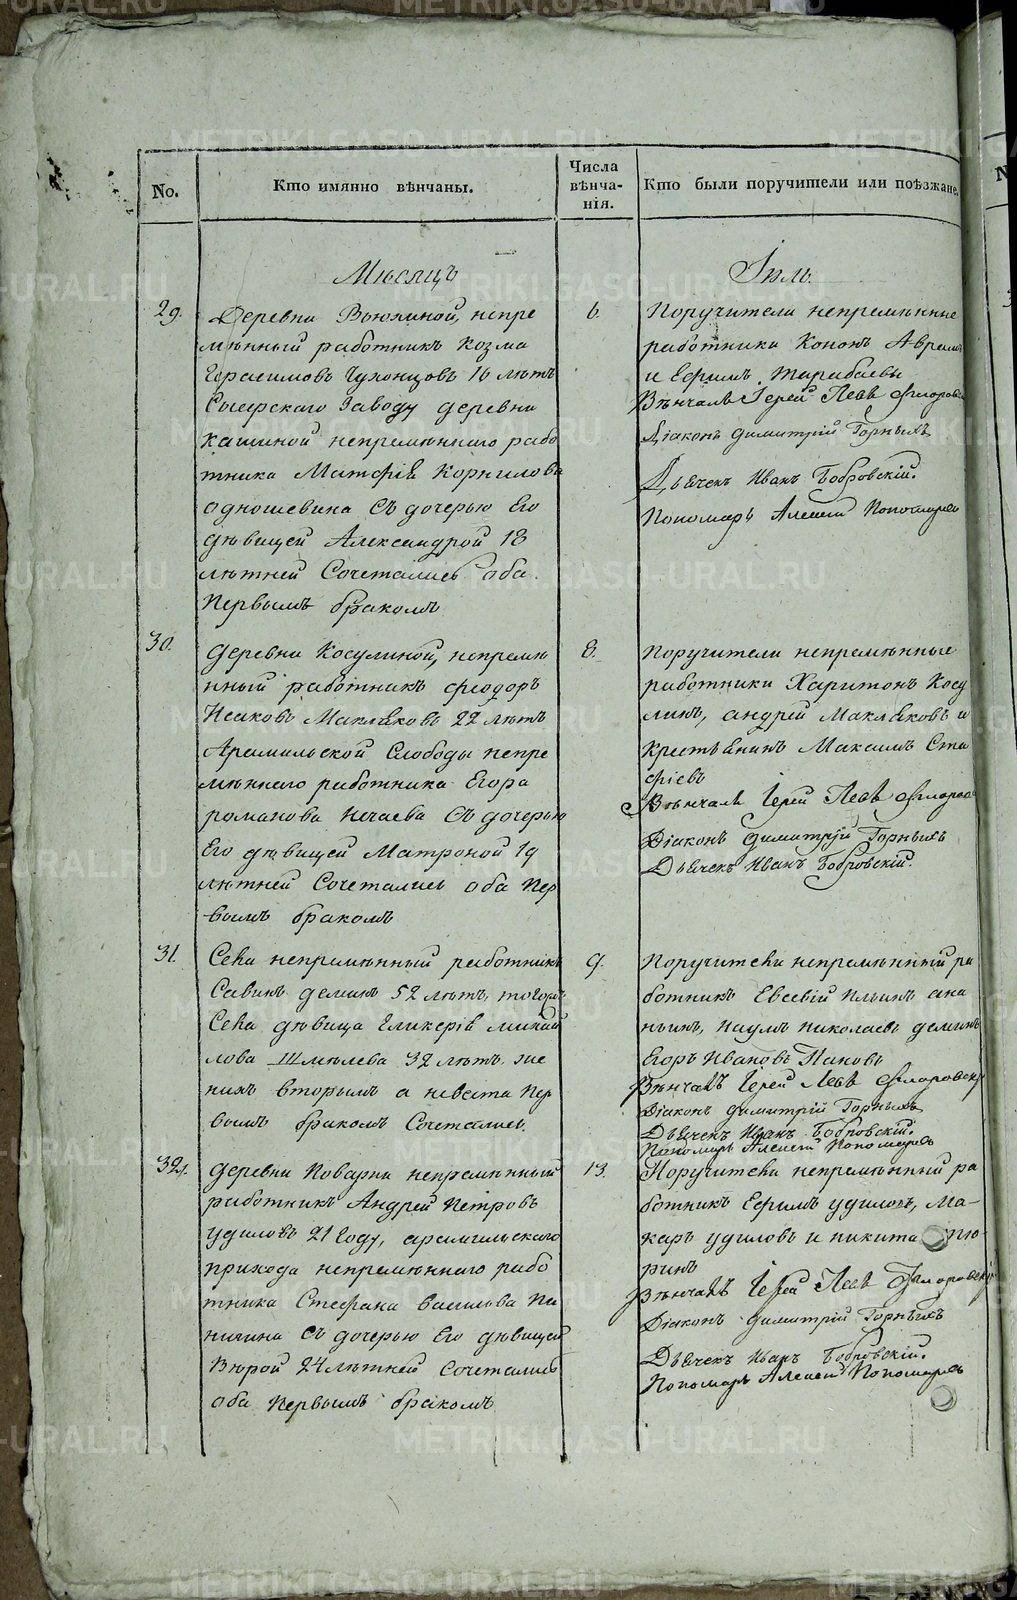 No.
Кто имянно вѣнчаны.
Числа вѣнча-нія.
Кто были поручители или поѣзжане.
Мѣсяцъ
Іюль.
29.
Деревни Вьюхиной, непре
мѣнный работникъ Козма
Герасимовъ Чухонцовъ 16 лѣтъ
Сысерскаго Заводу деревни
Кашиной непремѣннаго рабо
тника Матфія Корнилова
одношевина Съ дочерью Его
дѣвицей Александрой 18
лѣтней Сочетались оба
первымъ бракомъ
6.
Поручители непремѣнные
работники Кононъ Аврамъ
и Ефимъ Тарабаевы
Вѣнчалъ Іерей Левъ Флоровс
Діаконъ Димитрій Горныхъ
Дьячекъ Иванъ Бобровскій.
Пономарь Алексей Пономарев
30.
Деревни Косулиной, непремѣ
нный работникъ Феодоръ
Исаковъ Макляковъ 22 лѣтъ
Арамильской Слободы непре
мѣннаго работника Егора
романова Нечаева Съ дочерью
Его дѣвицей Матроной 19
лѣтней Сочетались оба пер
вымъ бракомъ
8.
Поручители непремѣнные
работники Харитонъ Косу
линъ, андрей Макляковъ и
Крестьянинъ Максимъ Ста
фіевъ
Вѣнчалъ Іерей Левъ Флоровс
Діаконъ Димитрій Горныхъ
Дьячекъ Иванъ Бобровскій.
31.
Села непремѣнный работникъ
Савинъ деминъ 52 лѣтъ, тогожъ
Села дѣвица Гликерія михай
лова Шмелева 32 лѣтъ. же
нихъ вторымъ а невеста пер
вымъ бракомъ Сочетались.
9.
Поручители непремѣнный ра
ботникъ Евсевій Ильинъ ана
ньинъ, наумъ николаевъ деминъ
Егоръ Ивановъ Пановъ
Вѣнчалъ Іерей Левъ Флоровскі
Діаконъ Димитрій Горныхъ
Дьячекъ Иванъ Бобровскій.
Пономарь Алексей Пономаревъ
32.
Деревни Поварни непремѣнный
работникъ Андрей Петровъ
удиловъ 21 году, арамильскаго
прихода непремѣннаго рабо
тника Стефана васильева
Съ дочерью Его дѣвицей
Вѣрой 24 лѣтней Сочетались
оба первымъ бракомъ
13.
Поручители непремѣнный ра
ботникъ Ефимъ удиловъ, Ма-
каръ удиловъ и никита пю-
ринъ
Вѣнчалъ Іерей Левъ Флоровскі
Діаконъ Димитрій Горныхъ
Дьячекъ Иванъ Бобровскій.
Пономарь Алексей Пономаревъ
METRIKI.GASO-URAL.RU